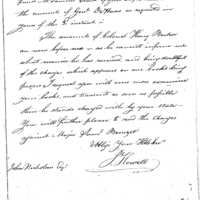 the amounts of Genl. DeHaas as required in
yours of the 8 instant —
The accounts of Colonel Henry Becker
are now before me — as he cannot inform me
what monies he has received, and being doubtful
of the charges which appears on our books think
proper, request you with one more examine
your books, and transmit as soon as possible
then he stands charged with by your state —
You will further please to send the charges
against Major James
Oblige Your Hble Ser
J Howell
John Nicholson Esqr.